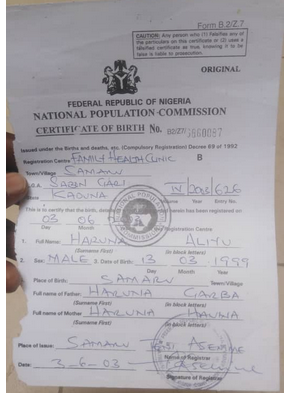 Form B.2/Z.7
CAUTION: Any person who (1) falsifies any of
the particulars on this certificate or (2) uses a
falsified certificate as true knowing it to be
false is liable to prosecution.
ORIGINAL
FEDERAL REPUBLIC OF NIGERIA
NATIONAL POPULATION COMMISSION
CERTIFICATE OF BIRTH No.
Issued under the Births and deaths, etc. (Compulsory Registration) Decree 69 of 1992
Registration Centre FAMILY HEALTH CLINIC B
Town/Village SAMARU
L.G.A. SABON GARI
KADUNA
Volume Year Entry No.
This is to certify that the birth, has been registered on
03 06
Day Month Year
1. Full Name: HARUNA ALIYU
(Surname First) (In block letters)
2. Sex MALE 3. Date of Birth: 13 03 1999
Day Month Year
Place of Birth: SAMARU
Town/Village
Full name of Father: HARUNA GARBA
(Surname First) (In block letters)
Full name of Mother HARUNA
(Surname First) (In block letters)
Place of Issue: SAMARU
Name of Registrar
Date 3-6-03
Signature of Registrar